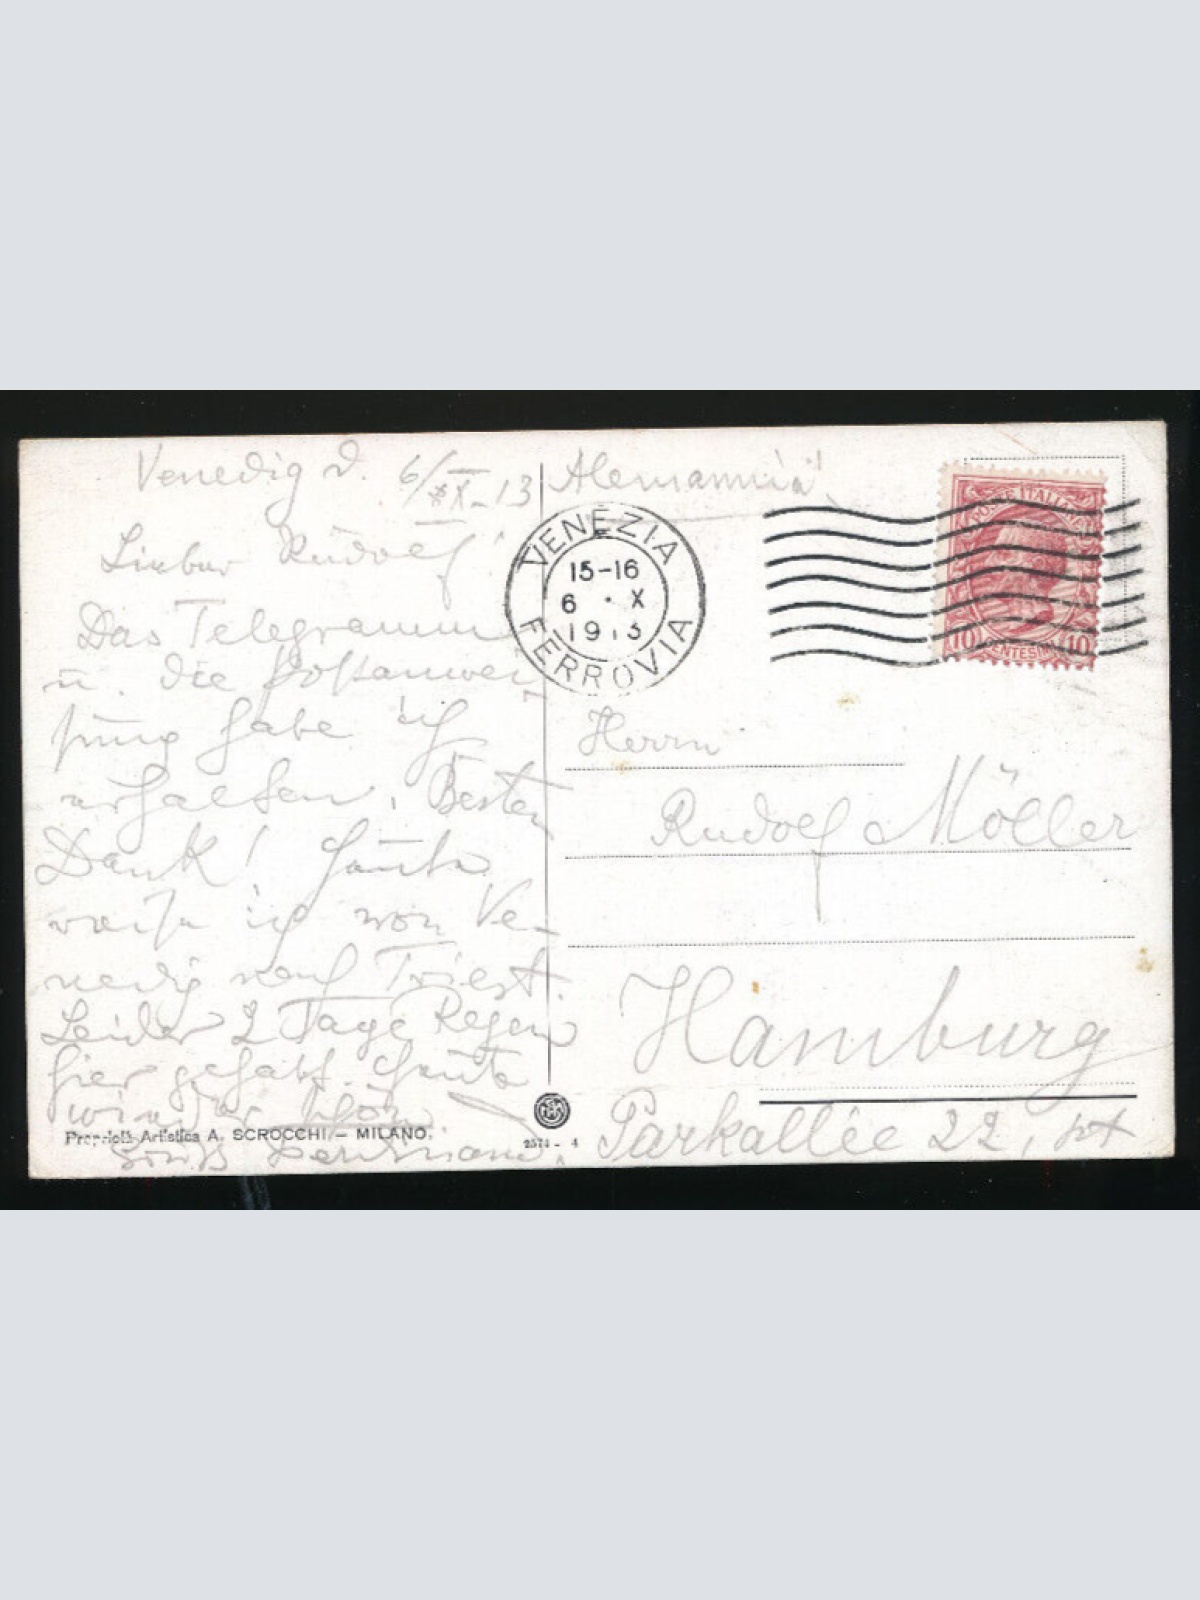 Venedig d. 6/X. 13
Lieber Rudolf!
Das Telegramm
u. die Postanwei-
sung habe ich
erhalten. Besten
Dank! Heute
reise ich von Ve-
nedig nach Triest.
Leider 2 Tage Regen
hier gehabt. Heute
wieder schön
Gruß
Proprietà Artistica A. SCROCCHI - MILANO.
2574 - 4
Alemannia!
VENEZIA
15-16
6 · X
1913
FERROVIA
POSTE ITALIANE
10 CENTESIMI 10
Herrn
Rudolf Möller
Hamburg
Parkallée 22, pt